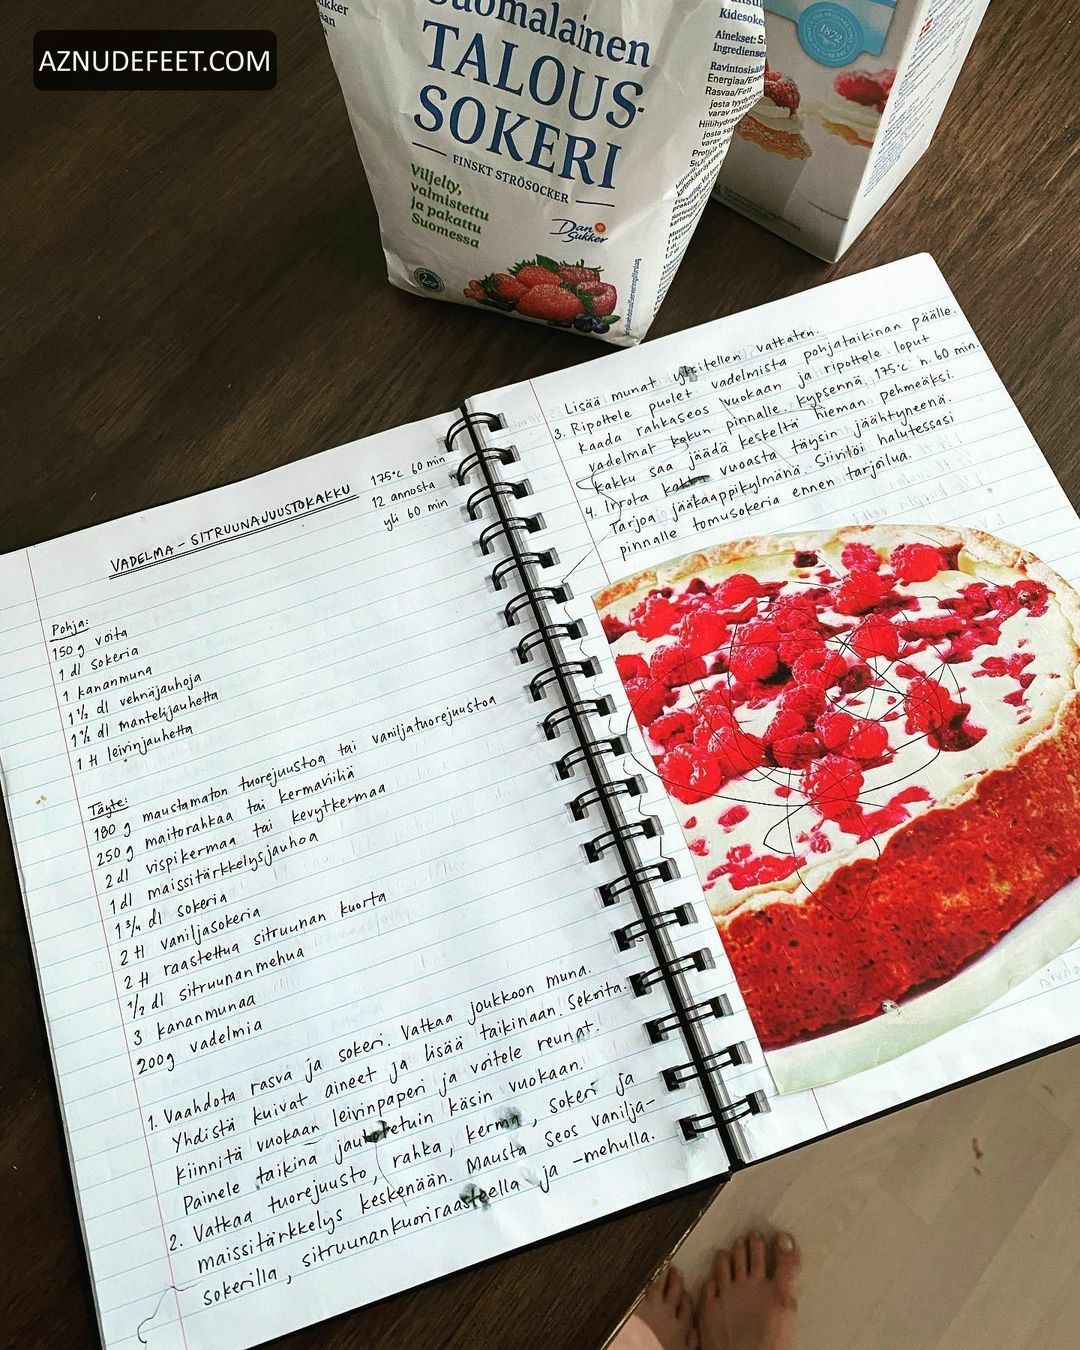 AZNUDEFEET.COM
Suomalainen
TALOUS-
SOKERI
FINSKT STRÖSOCKER
Viljelty,
valmistettu
ja pakattu
Suomessa
Dan
Sukker
Kidesoke
Ainekset: S
Ingrediense
Ravintosisä
Energiaa/Ene
Rasvaa/Fett
1872
VADELMA - SITRUUNAJUUSTOKAKKU
175°C 60 min
12 annosta
yli 60 min
Pohja:
150 g voita
1 dl sokeria
1 kananmuna
1 1/2 dl vehnäjauhoja
1 1/2 dl mantelijauhetta
1 tl leivinjauhetta
Täyte:
180 g maustamaton tuorejuustoa tai vaniljatuorejuustoa
250 g maitorahkaa tai kermaviiliä
2 dl vispikermaa tai kevytkermaa
1 dl maissitärkkelysjauhoa
1 3/4 dl sokeria
2 tl vaniljasokeria
2 tl raastettua sitruunan kuorta
1/2 dl sitruunanmehua
3 kananmunaa
200g vadelmia
1. Vaahdota rasva ja sokeri. Vatkaa joukkoon muna.
Yhdistä kuivat aineet ja lisää taikinaan. Sekoita.
Kiinnitä vuokaan leivinpaperi ja voitele reunat.
Painele taikina jauhotetuin käsin vuokaan.
2. Vatkaa tuorejuusto, rahka, kerma, sokeri ja
maissitärkkelys keskenään. Mausta seos vanilja-
sokerilla, sitruunankuoriraasteella ja -mehulla.
Lisää munat yksitellen vatkaten.
3. Ripottele puolet vadelmista pohjataikinan päälle.
Kaada rahkaseos vuokaan ja ripottele loput
vadelmat kakun pinnalle. Kypsennä, 175°C n. 60 min.
Kakku saa jäädä keskeltä hieman pehmeäksi.
4. Irrota kakku vuoasta täysin jäähtyneenä.
Tarjoa jääkaappikylmänä. Siivilöi halutessasi
pinnalle tomusokeria ennen tarjoilua.